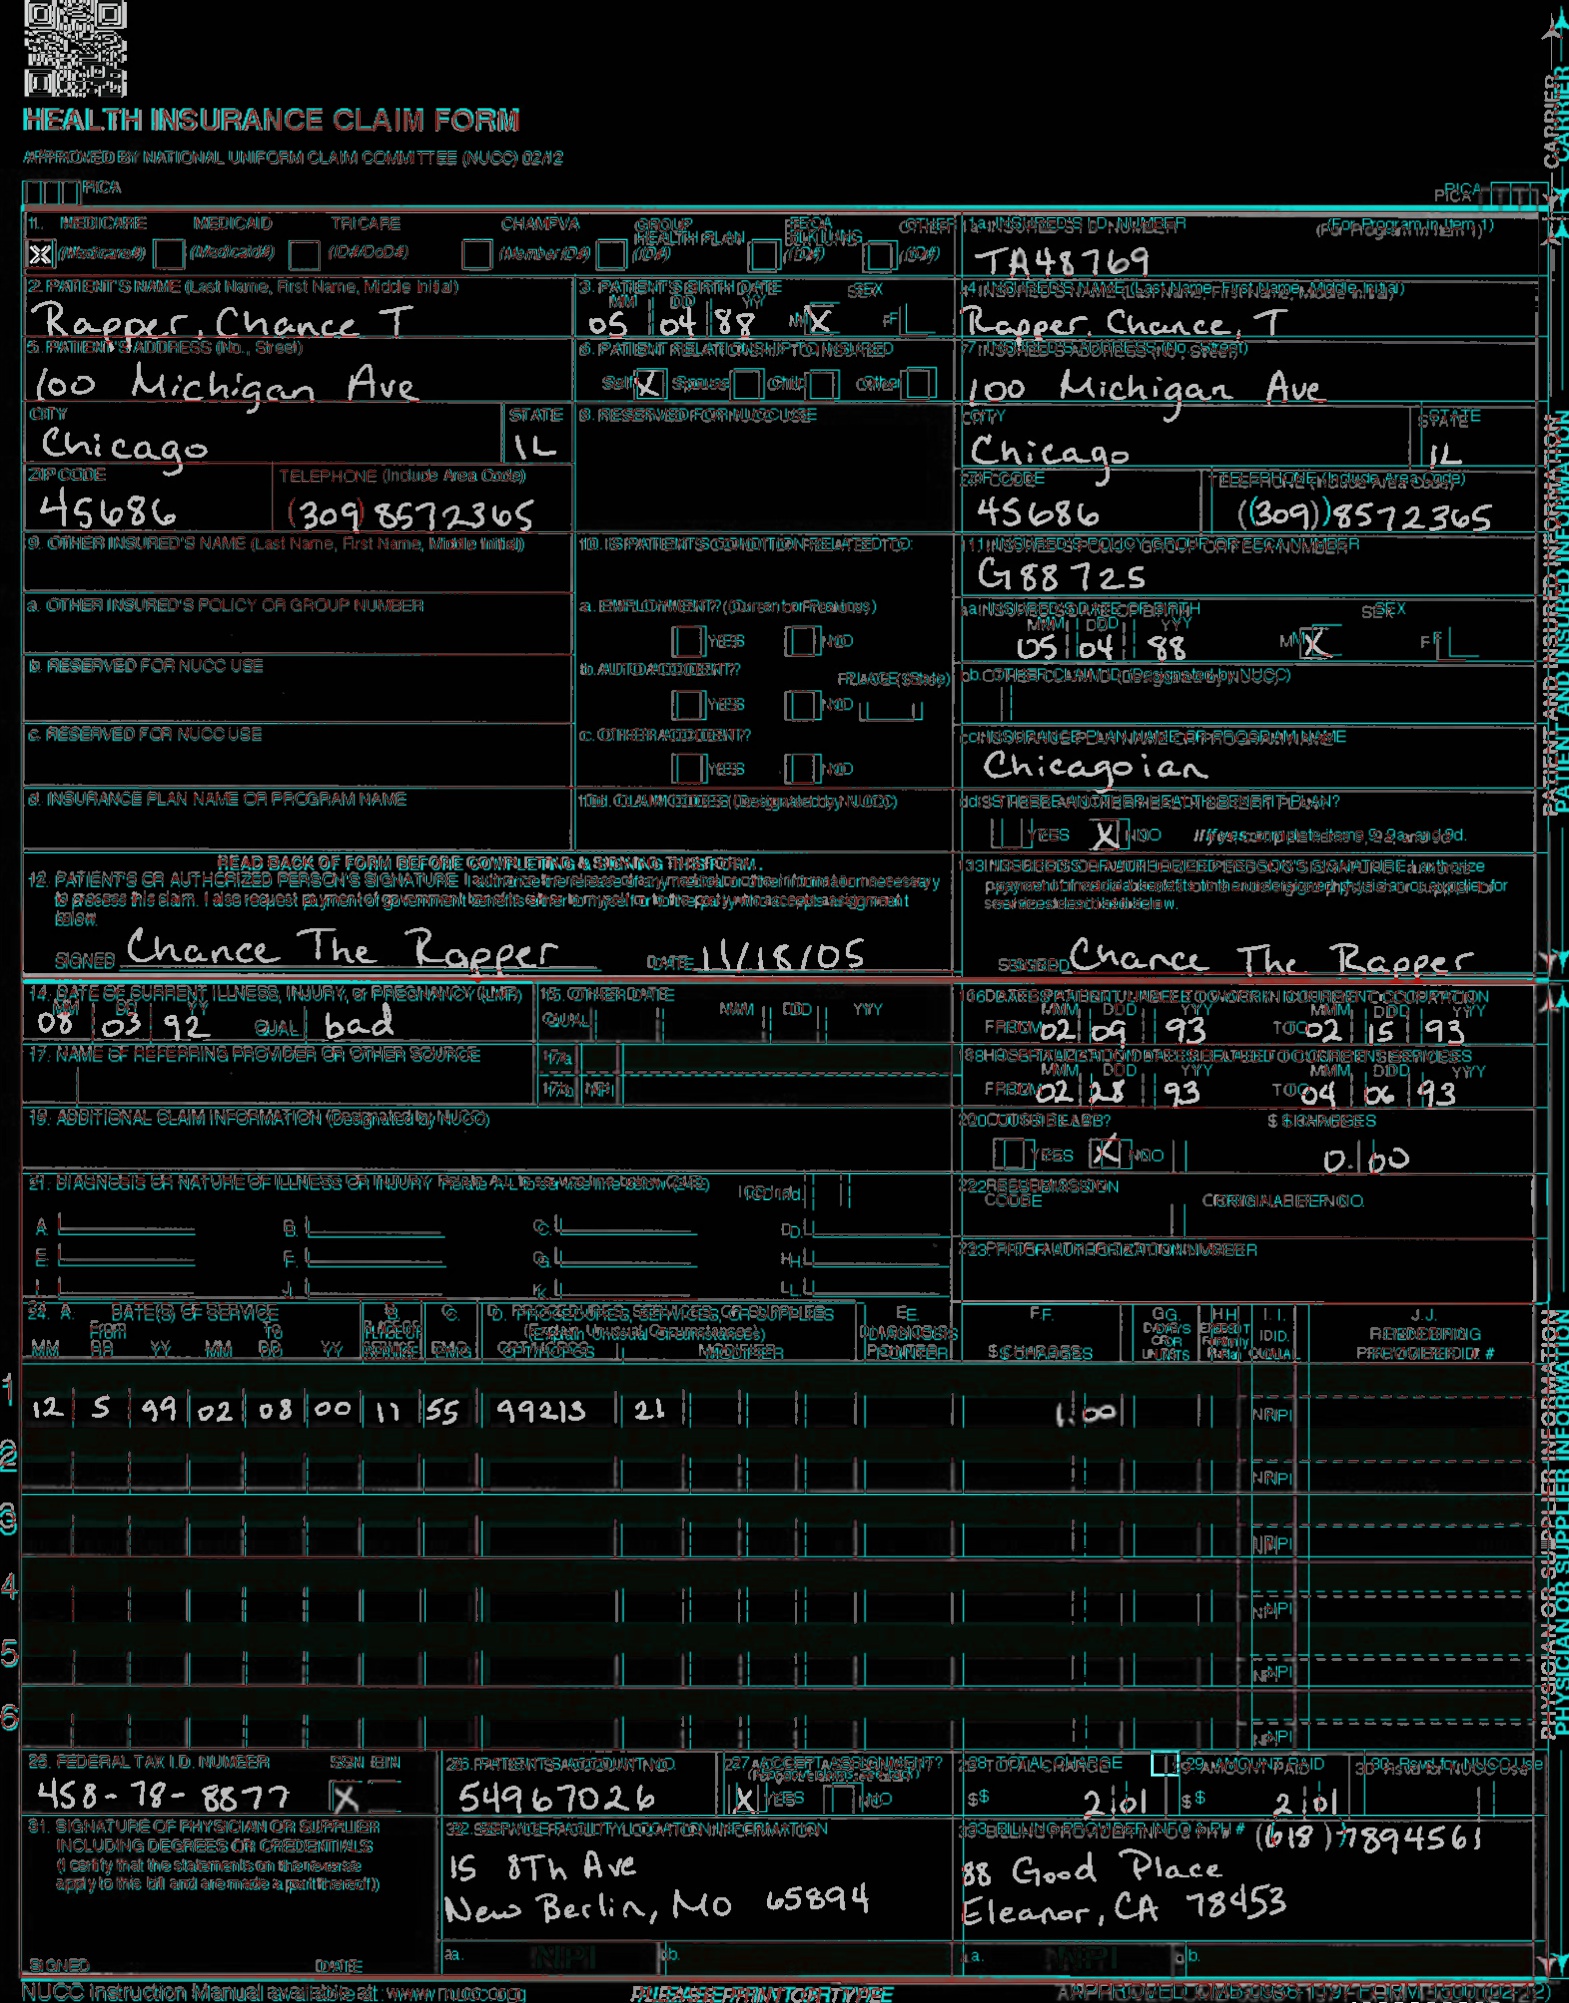 HEALTH INSURANCE CLAIM FORM
APPROVED BY NATIONAL UNIFORM CLAIM COMMITTEE (NUCC) 02/12
PICA
PICA
CARRIER
1. MEDICARE MEDICAID TRICARE CHAMPVA GROUP HEALTH PLAN FECA BLK LUNG OTHER
X (Medicare#) (Medicaid#) (ID#/DoD#) (Member ID#) (ID#) (ID#) (ID#)
1a. INSURED'S I.D. NUMBER (For Program in Item 1)
TA48769
2. PATIENT'S NAME (Last Name, First Name, Middle Initial)
Rapper, Chance T
3. PATIENT'S BIRTH DATE SEX
MM DD YY
05 04 88 M X F
4. INSURED'S NAME (Last Name, First Name, Middle Initial)
Rapper, Chance, T
5. PATIENT'S ADDRESS (No., Street)
100 Michigan Ave
6. PATIENT RELATIONSHIP TO INSURED
Self X Spouse Child Other
7. INSURED'S ADDRESS (No., Street)
100 Michigan Ave
CITY STATE
Chicago IL
8. RESERVED FOR NUCC USE
CITY STATE
Chicago IL
ZIP CODE TELEPHONE (Include Area Code)
45686 (309) 8572365
ZIP CODE TELEPHONE (Include Area Code)
45686 (309) 8572365
9. OTHER INSURED'S NAME (Last Name, First Name, Middle Initial)
10. IS PATIENT'S CONDITION RELATED TO:
11. INSURED'S POLICY GROUP OR FECA NUMBER
G88725
a. OTHER INSURED'S POLICY OR GROUP NUMBER
a. EMPLOYMENT? (Current or Previous)
YES NO
a. INSURED'S DATE OF BIRTH SEX
MM DD YY
05 04 88 M X F
b. RESERVED FOR NUCC USE
b. AUTO ACCIDENT? PLACE (State)
YES NO
b. OTHER CLAIM ID (Designated by NUCC)
c. RESERVED FOR NUCC USE
c. OTHER ACCIDENT?
YES NO
c. INSURANCE PLAN NAME OR PROGRAM NAME
Chicagoian
d. INSURANCE PLAN NAME OR PROGRAM NAME
10d. CLAIM CODES (Designated by NUCC)
d. IS THERE ANOTHER HEALTH BENEFIT PLAN?
YES X NO If yes, complete items 9, 9a, and 9d.
PATIENT AND INSURED INFORMATION
READ BACK OF FORM BEFORE COMPLETING & SIGNING THIS FORM.
12. PATIENT'S OR AUTHORIZED PERSON'S SIGNATURE I authorize the release of any medical or other information necessary
to process this claim. I also request payment of government benefits either to myself or to the party who accepts assignment
below.
SIGNED Chance The Rapper DATE 11/18/05
13. INSURED'S OR AUTHORIZED PERSON'S SIGNATURE I authorize
payment of medical benefits to the undersigned physician or supplier for
services described below.
SIGNED Chance The Rapper
14. DATE OF CURRENT ILLNESS, INJURY, or PREGNANCY (LMP)
MM DD YY
08 03 92 QUAL. bad
15. OTHER DATE
QUAL. MM DD YY
16. DATES PATIENT UNABLE TO WORK IN CURRENT OCCUPATION
MM DD YY MM DD YY
FROM 02 09 93 TO 02 15 93
17. NAME OF REFERRING PROVIDER OR OTHER SOURCE
17a.
17b. NPI
18. HOSPITALIZATION DATES RELATED TO CURRENT SERVICES
MM DD YY MM DD YY
FROM 02 28 93 TO 04 06 93
19. ADDITIONAL CLAIM INFORMATION (Designated by NUCC)
20. OUTSIDE LAB? $ CHARGES
YES X NO 0.00
21. DIAGNOSIS OR NATURE OF ILLNESS OR INJURY Relate A-L to service line below (24E) ICD Ind.
A. B. C. D.
E. F. G. H.
I. J. K. L.
22. RESUBMISSION CODE ORIGINAL REF. NO.
23. PRIOR AUTHORIZATION NUMBER
24. A. DATE(S) OF SERVICE B. C. D. PROCEDURES, SERVICES, OR SUPPLIES E. F. G. H. I. J.
From To PLACE OF (Explain Unusual Circumstances) DIAGNOSIS DAYS OR EPSDT Family ID. RENDERING
MM DD YY MM DD YY SERVICE EMG CPT/HCPCS MODIFIER POINTER $ CHARGES UNITS Plan QUAL. PROVIDER ID. #
1
12 5 99 02 08 00 11 55 99213 21 1.00 NPI
2
NPI
3
NPI
4
NPI
5
NPI
6
NPI
PHYSICIAN OR SUPPLIER INFORMATION
25. FEDERAL TAX I.D. NUMBER SSN EIN
458-78-8877 X
26. PATIENT'S ACCOUNT NO.
54967026
27. ACCEPT ASSIGNMENT?
(For govt. claims, see back)
X YES NO
28. TOTAL CHARGE
$ 2 01
29. AMOUNT PAID
$ 2 01
30. Rsvd for NUCC Use
31. SIGNATURE OF PHYSICIAN OR SUPPLIER
INCLUDING DEGREES OR CREDENTIALS
(I certify that the statements on the reverse
apply to this bill and are made a part thereof.)
SIGNED DATE
32. SERVICE FACILITY LOCATION INFORMATION
15 8Th Ave
New Berlin, MO 65894
a. NPI b.
33. BILLING PROVIDER INFO & PH # (618) 7894561
88 Good Place
Eleanor, CA 78453
a. NPI b.
NUCC Instruction Manual available at: www.nucc.org
PLEASE PRINT OR TYPE